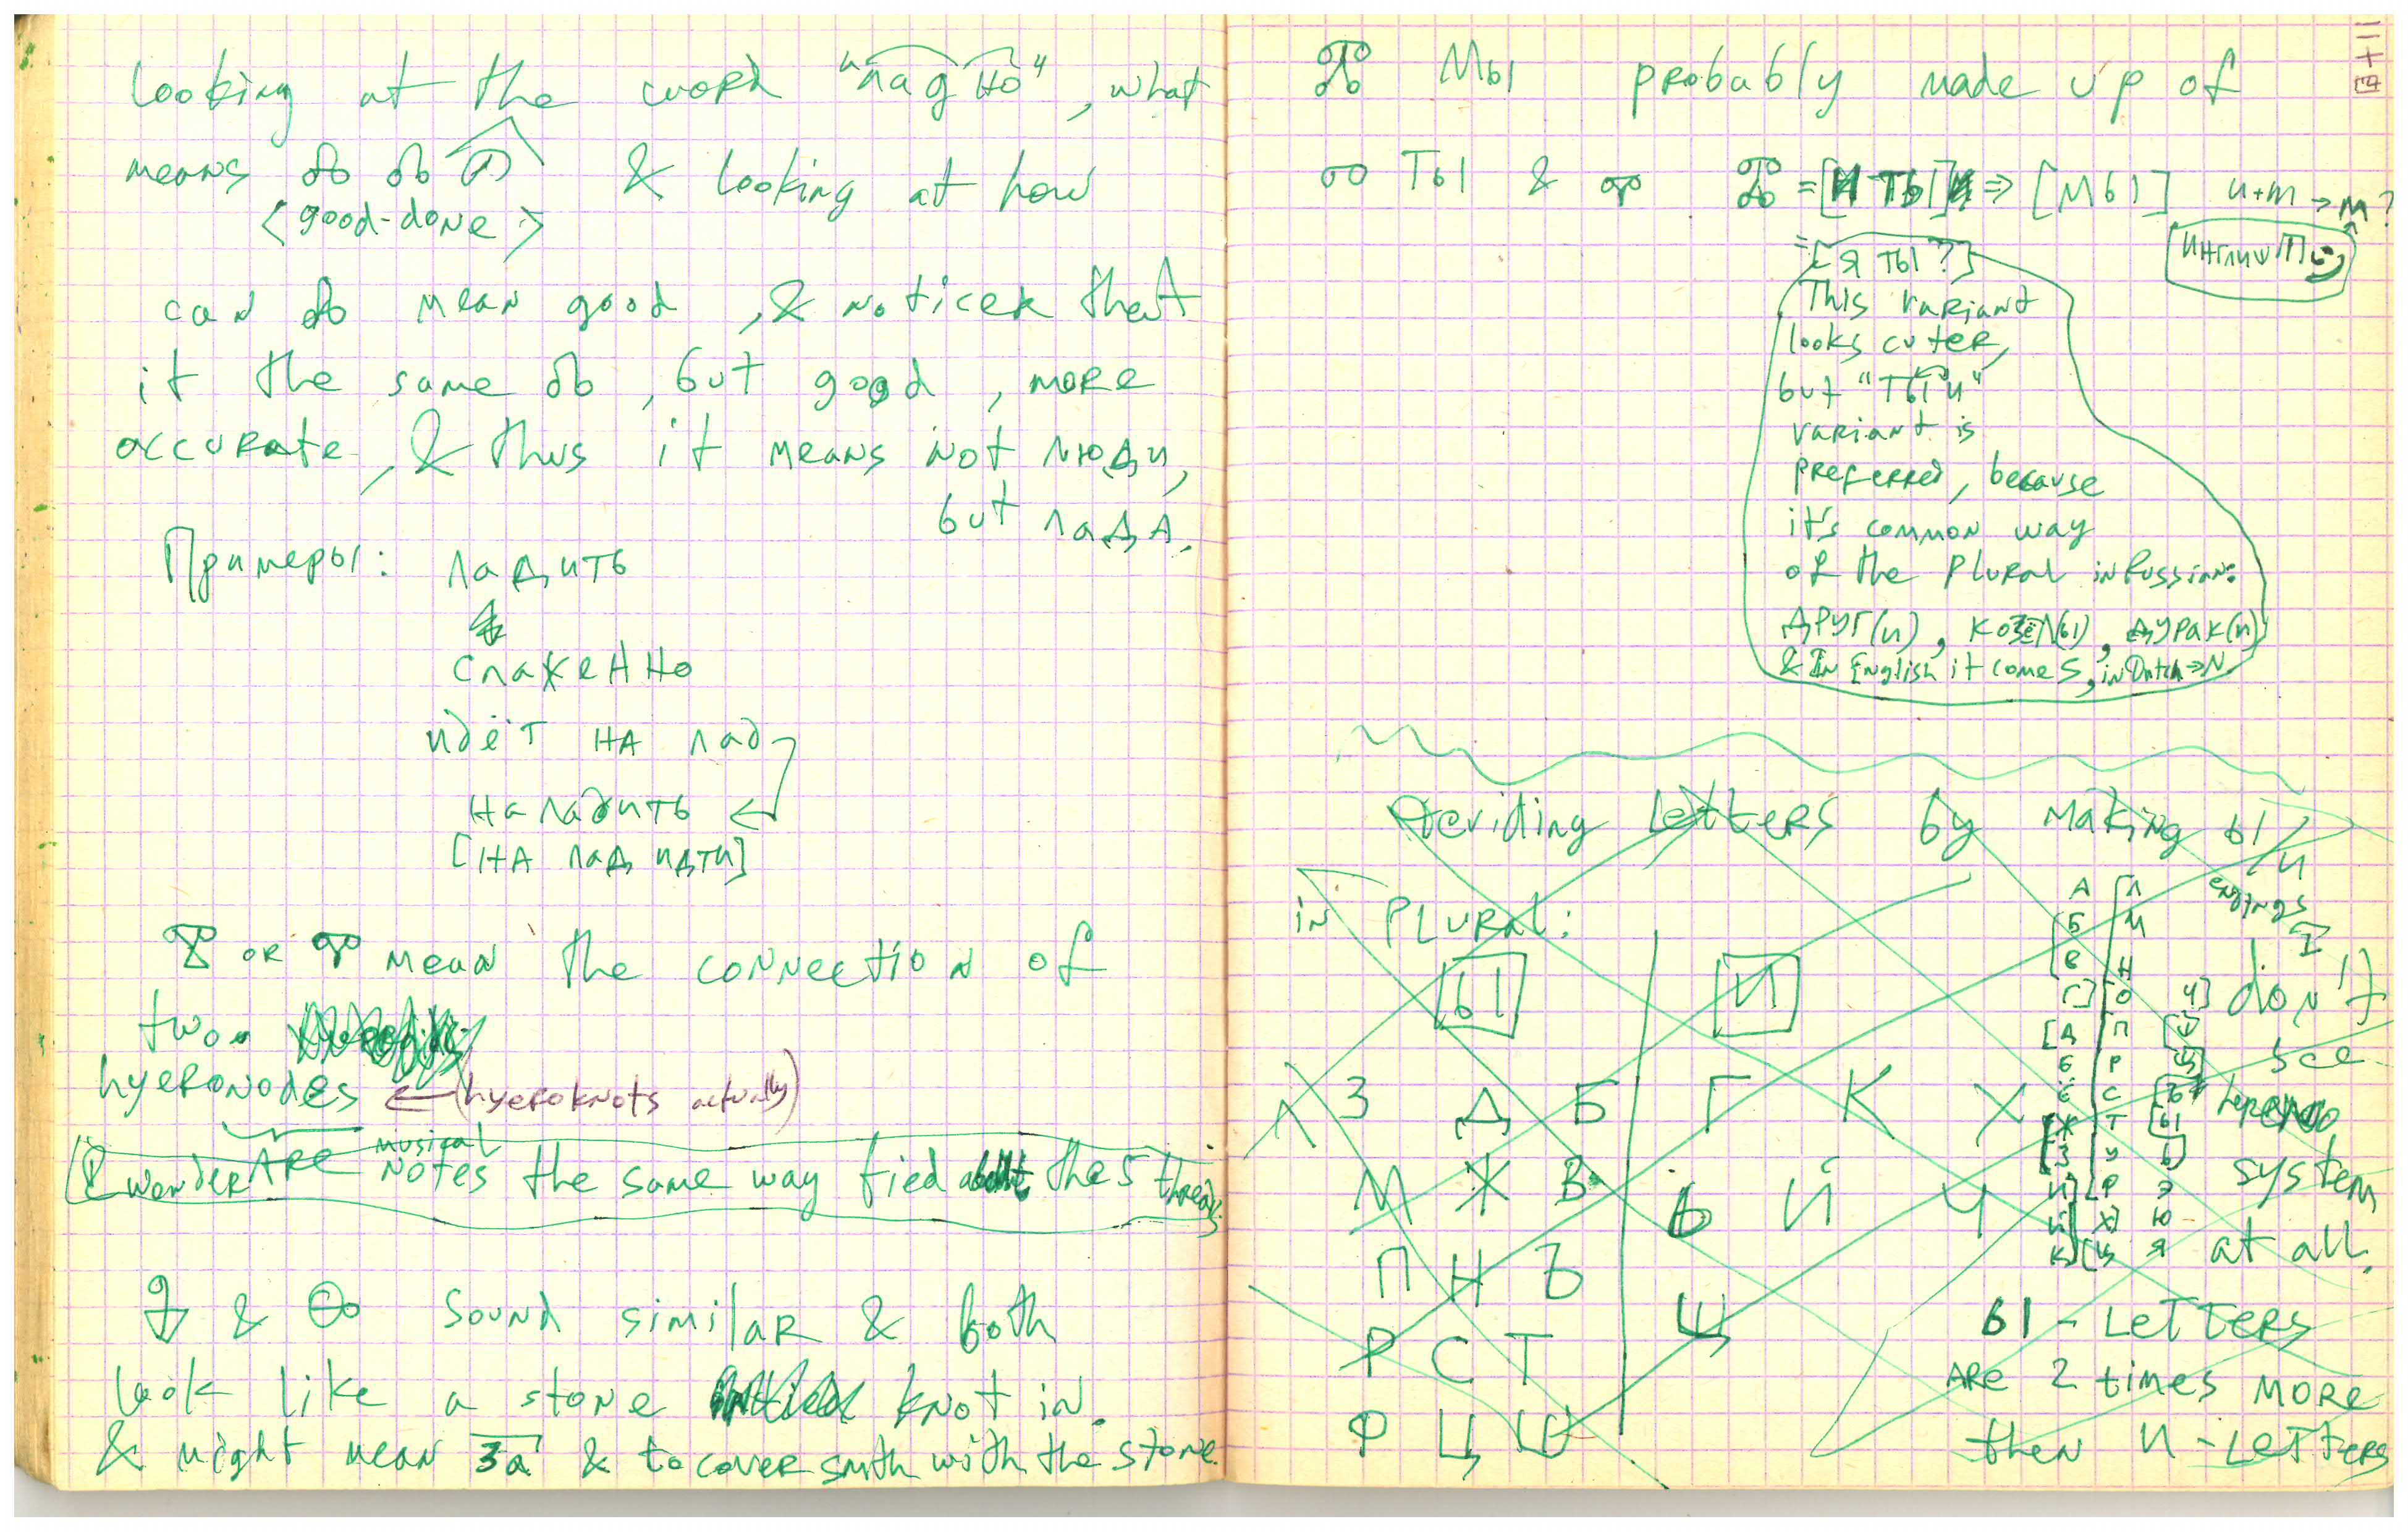 looking at the word "ладно", what
means & looking at how
<good-done>
can mean good, & noticed that
it the same , but good, more
accurate, & thus it means not люди,
but лада.
Примеры: ладить
слаженно
идёт на лад
наладить
[на лад идти]
or mean the connection of
two
hyeronodes ← (hyeroknots actually)
I wonder are musical notes the same way tied the 5 threads
& sound similar & both
look like a stone knot in.
& might mean за & to cover smth with the stone.
二十四
мы probably made up of
ты & = [и ты] => [мы] и+т → м?
инглиш
= [я ты?]
This variant
looks cuter,
but "ты и"
variant is
preferred, because
it's common way
of the plural in Russian:
друг(и), козёл(ы), дурак(и)
& in English it come S, in Dutch => N
deviding letters by making ы/и
endings
in plural:
ы и
Л З Д Б Г К Х
М Ж В Ь Й Ч
П Н Ъ
Р С Т Щ
Ф Ц Ш
I
don't
see
here no
system
at all.
ы - letters
are 2 times more
then и - letters